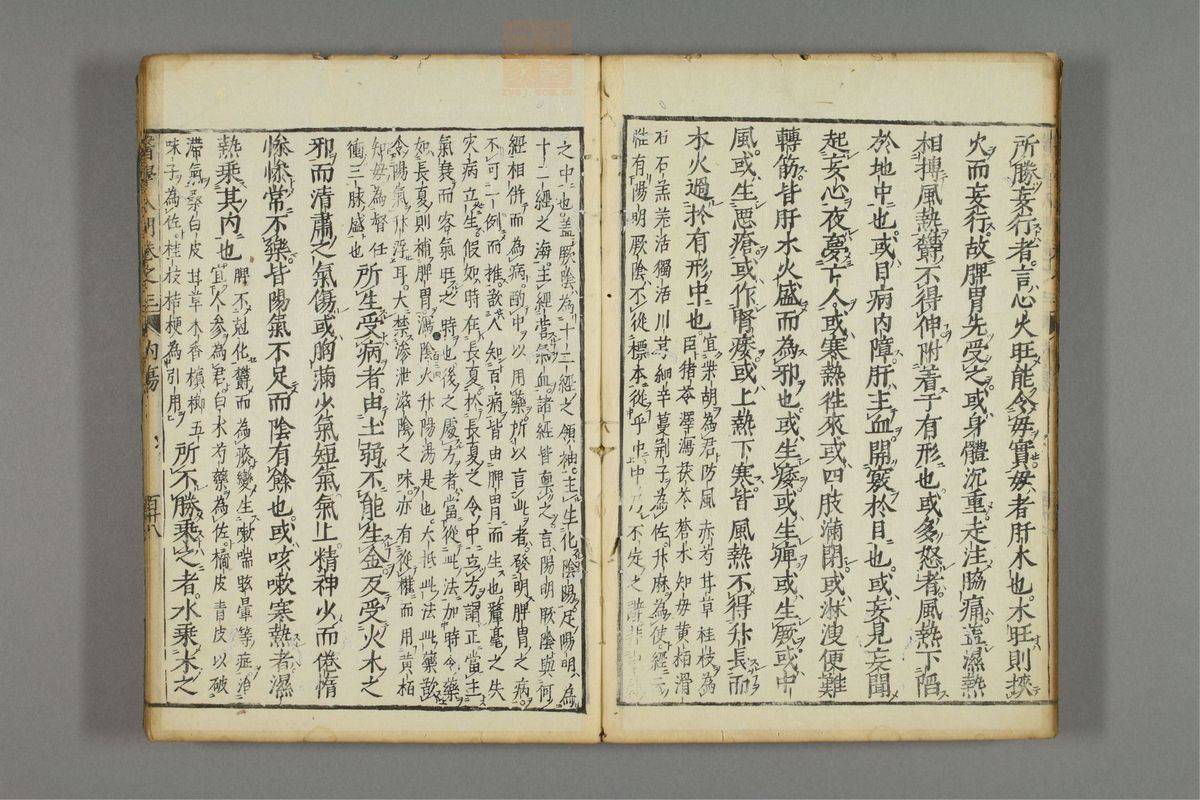 所勝妄行者言心火旺能令母實母者肝木也木旺則挾
火而妄行故脾胃先受之或身體沉重走注脇痛蓋濕熱
相搏風熱欝不得伸附着于有形也或多怒者風熱下陷
於地中也或目病內障肝主血開竅於目也或妄見妄聞
起妄心夜夢亡人或寒熱徃來或四肢滿閉或淋溲便難
轉筋皆肝木火盛而為邪也或生痿或生痺或生厥或中
風或生惡瘡或作腎痿或上熱下寒皆風熱不得升長而
木火遏於有形中也
宜柴胡為君防風
臣猪苓澤瀉茯苓
赤芍甘草桂枝為
蒼朮知母黃栢滑
石石羔羌活獨活川芎細辛蔓荊子為佐升麻為使經云
性有陽明厥陰不從標本從乎中中
不定之辭
之中也盖厥陰為十二經之領袖主生化陰陽足陽明為
十二經之海主經營氣血諸經皆禀之言陽明厥陰與何
經相併而為病酌中以用藥所以言此者發明脾胃之病
不可一例而推欲人知百病皆由脾胃而生也釐毫之失
灾病立生假如時在長夏於長夏之令中立方謂正當主
氣衰而客氣旺之時也後之處方者當從此法加時令藥
如長夏則補脾胃瀉陰火升陽湯是也大抵此法此藥欲
令陽氣升浮耳大禁滲泄滋陰之味亦有從權而用黃栢
知母為督任
衝三脉盛也
所生受病者由土弱不能生金反受火木之
邪而清肅之氣傷或胸滿少氣短氣氣上精神少而倦惰
慘慘常不樂皆陽氣不足而陰有餘也或咳嗽寒熱者濕
熱乘其內也
脾不尅化欝而為痰變生嗽喘駭暈等症治
宜人參為君白朮芍藥為佐橘皮青皮以破
滯氣桑白皮甘草木香檳榔五
味子為佐桂枝桔梗為引用
所不勝乘之者水乘木之
醫學入門卷之三 內傷 百十八